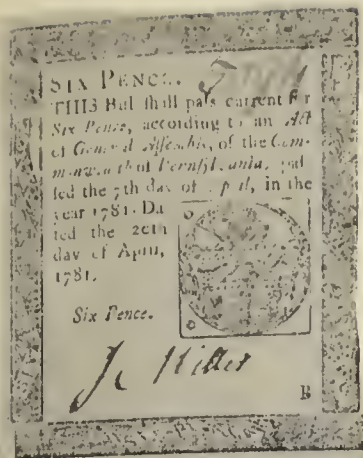 SIX PENCE.
THIS Bill ſhall paſs current for
Six Pence, according to an Act
of General Aſſembly, of the Com-
monwealth of Pennſylvania, paſ-
ſed the 7th day of April, in the
year 1781. Da
ted the 20th
day of April,
1781.
Six Pence.
B